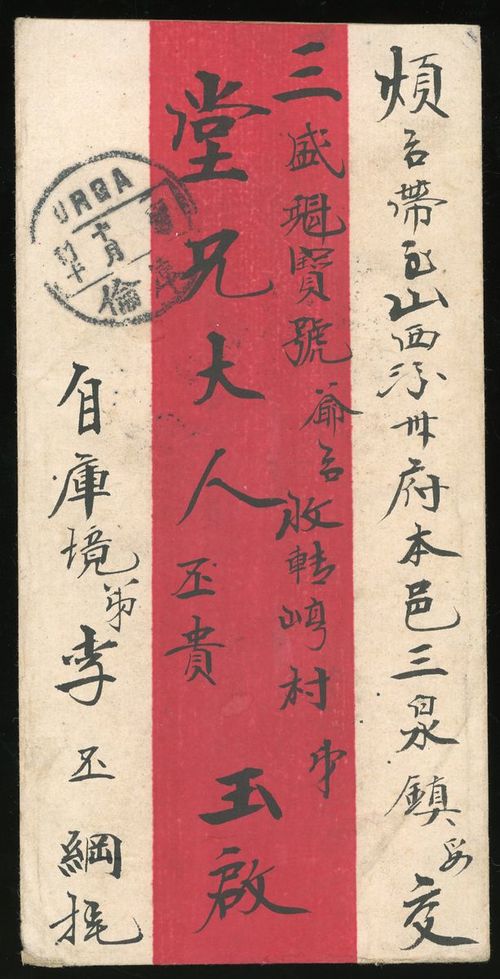 煩台帶至山西汾州府本邑三泉鎮妥交
三盛魁賢號爺台收轉崞村
堂兄大人丕貴玉啟
自庫境弟李丕綱托
URGA
十月
倫